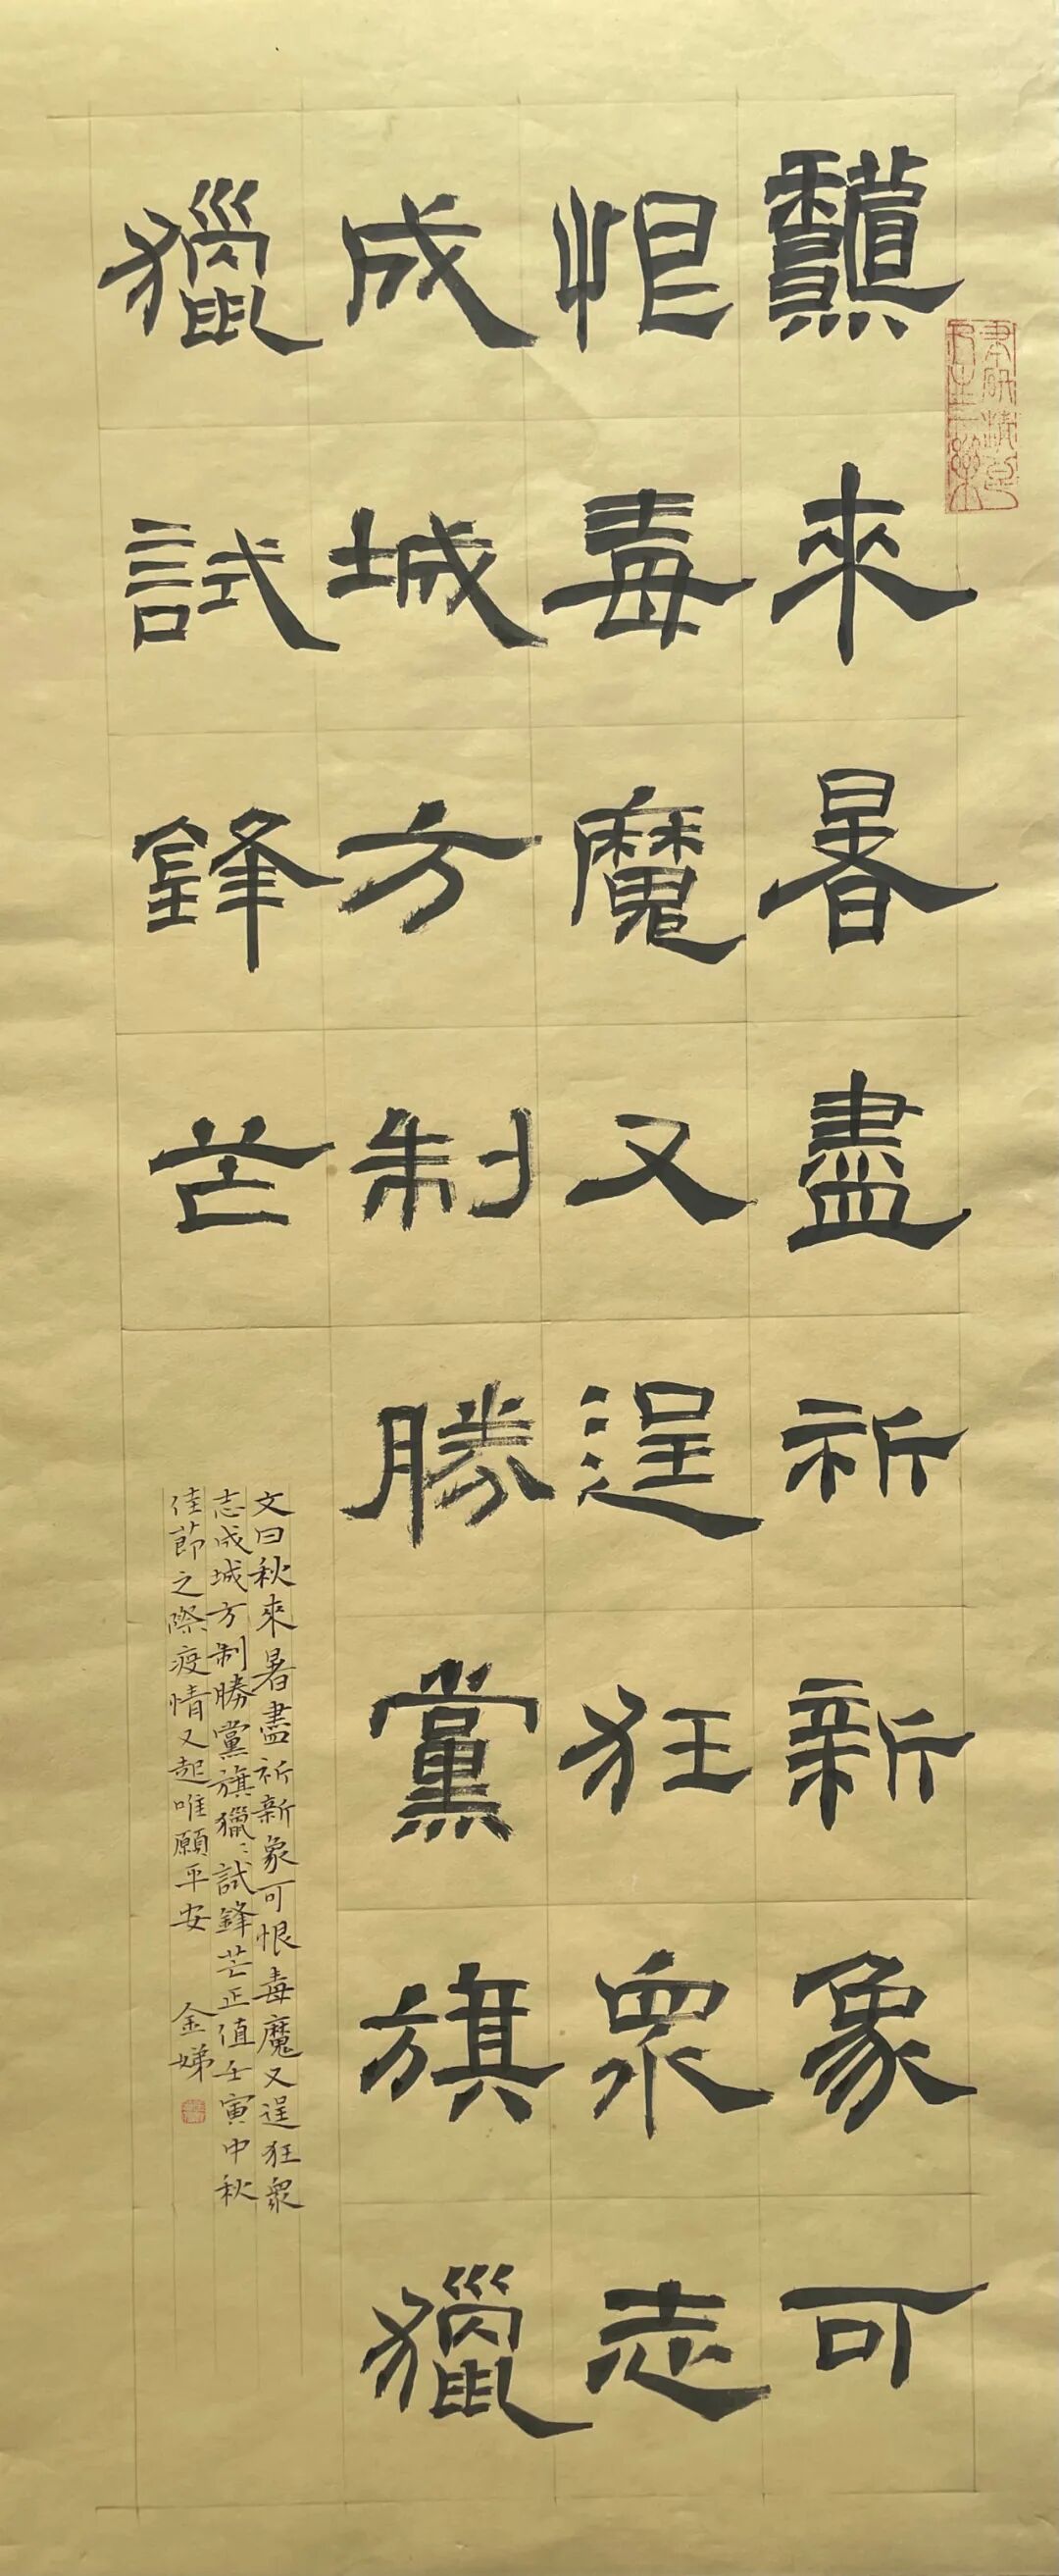 秋來暑盡祈新象可
恨毒魔又逞狂眾志
成城方制勝黨旗獵
獵試鋒芒
文曰秋來暑盡祈新象可恨毒魔又逞狂眾
志成城方制勝黨旗獵〻試鋒芒正值壬寅中秋
佳節之際疫情又起唯願平安 金娣